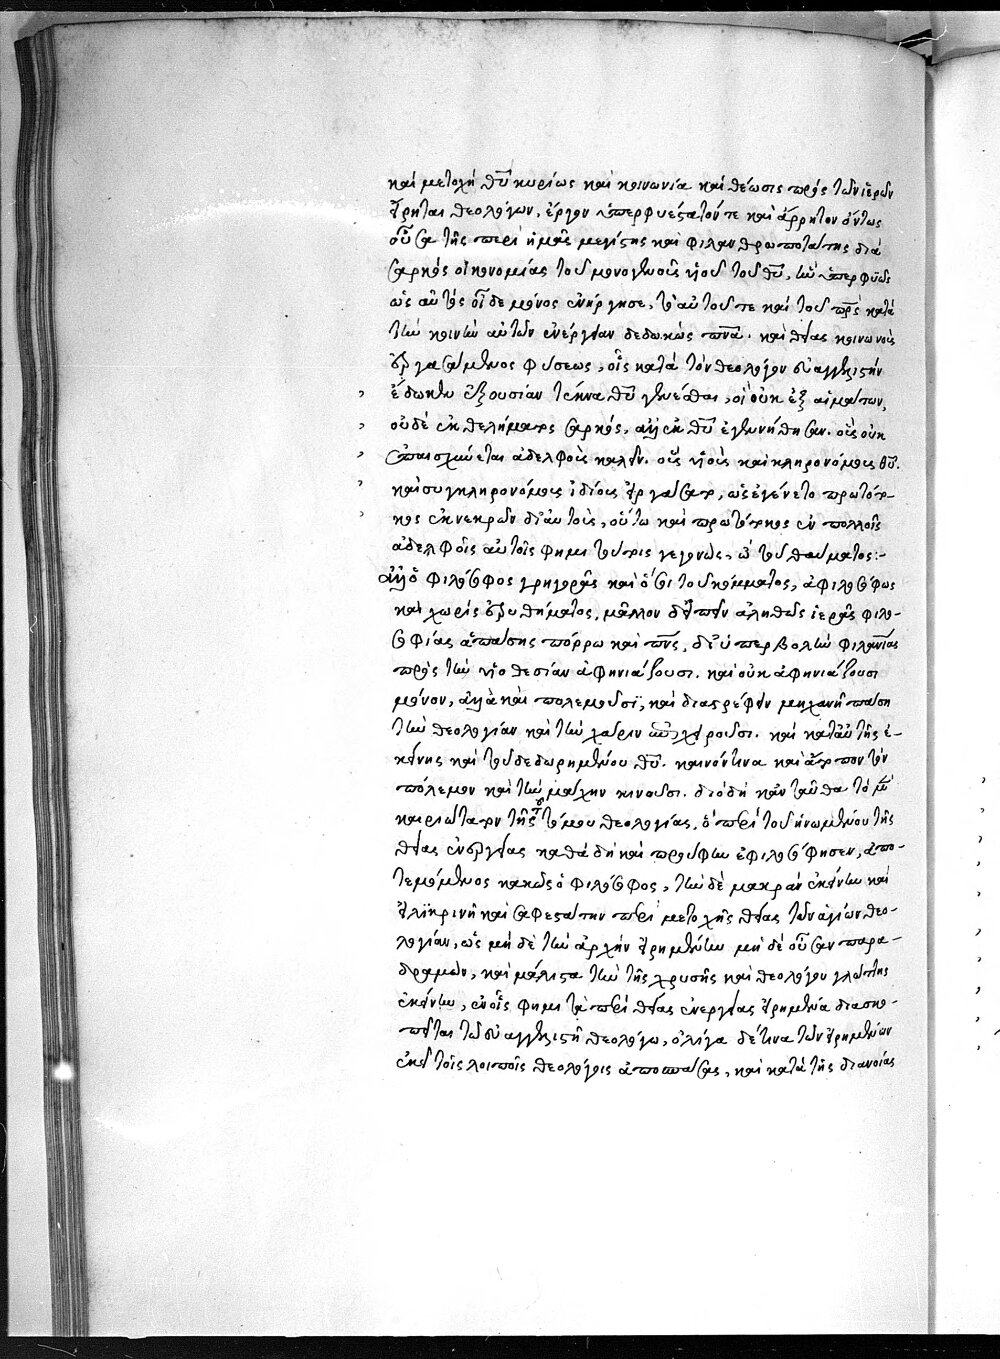 καὶ μετοχὴ θ̅υ̅ κυρίως καὶ κοινωνία καὶ θέωσις πρὸς τῶν ἱερῶν
εἴρηται θεολόγων, ἔργον ὑπερφυέστατόν τε καὶ ἄρρητον ὄντως
οὖσα τῆς περὶ ἡμᾶς μεγίστης καὶ φιλανθρωποτάτης διὰ
σαρκὸς οἰκονομίας τοῦ μονογενοῦς υἱοῦ τοῦ θ̅υ̅, ἣν ὑπερφυῶς
ὡς αὐτὸς οἶδε μόνος ἐνήργησε, τὸ αὐτοῦ τε καὶ τοῦ π̅ρ̅ς̅ κατὰ
τὴν κοινὴν αὐτῶν ἐνέργειαν δεδωκὼς π̅ν̅α̅. καὶ θείας κοινωνοὺς
ἐργασάμενος φύσεως, οἷς κατὰ τὸν θεολόγον εὐαγγελιστὴν
ἔδωκεν ἐξουσίαν τέκνα θ̅υ̅ γενέσθαι, οἳ οὐκ ἐξ αἱμάτων,
οὐδὲ ἐκ θελήματος σαρκός, ἀλλ' ἐκ θ̅υ̅ ἐγεννήθησαν. οὓς οὐκ
ἐπαισχύνεται ἀδελφοὺς καλεῖν. οὓς υἱοὺς καὶ κληρονόμους θ̅υ̅.
καὶ συγκληρονόμους ἰδίους εἰργάσατο, ὡς ἐγένετο πρωτότο-
κος ἐκ νεκρῶν δι' αὐτούς, οὕτω καὶ πρωτότοκος ἐν πολλοῖς
ἀδελφοῖς αὐτοῖς φημι τούτοις γεγονώς, ὢ τοῦ θαύματος:-
ἀλλ' ὁ φιλόσοφος γρηγορᾶς καὶ ὅσοι τοῦ κόμματος, ἀφιλοσόφως
καὶ χωρὶς ἐρυθήματος, μᾶλλον δ' εἰπεῖν ἀληθῶς ἱερᾶς φιλο-
σοφίας ἁπάσης πόρρω καὶ π̅ν̅ς̅, δι' ὑπερβολὴν φιλαυτίας
πρὸς τὴν υἱοθεσίαν ἀφηνιάζουσι. καὶ οὐκ ἀφηνιάζουσι
μόνον, ἀλλὰ καὶ πολεμοῦσι, καὶ διαστρέφειν μηχανῇ πάσῃ
τὴν θεολογίαν καὶ τὴν χάριν ἐπιχειροῦσι. καὶ κατ' αὐτῆς ἐ-
κείνης καὶ τοῦ δεδωρημένου θ̅υ̅. καινόν τινα καὶ ἄτοπον τὸν
πόλεμον καὶ τὴν μάχην κινοῦσι. διὸ δὴ κἀνταῦθα τὸ μὲν
καιριώτατον τῆς τοῦ τόμου θεολογίας, ὃ περὶ τοῦ ἡνωμένου τῆς
θείας ἐνεργείας καθὰ δὴ καὶ προὔφην ἐφιλοσόφησεν, ἀπο-
τεμόμενος κακῶς ὁ φιλόσοφος, τὴν δὲ μακρὰν ἐκείνην καὶ
εἰλικρινῆ καὶ σαφεστάτην περὶ μετοχῆς θείας τῶν ἁγίων θεο-
λογίαν, ὡς μὴ δὲ τὴν ἀρχὴν εἰρημένην μὴ δὲ οὖσαν παρα-
δραμών, καὶ μάλιστα τὴν τῆς χρυσῆς καὶ θεολόγου γλώττης
ἐκείνην, ἐν οἷς φημι τὰ περὶ θείας ἐνεργείας εἰρημένα διασκο-
πεῖται τῷ εὐαγγελιστῇ θεολόγῳ, ὀλίγα δέ τινα τῶν εἰρημένων
ἐκεῖ τοῖς λοιποῖς θεολόγοις ἀποσπάσας, καὶ κατὰ τῆς διανοίας